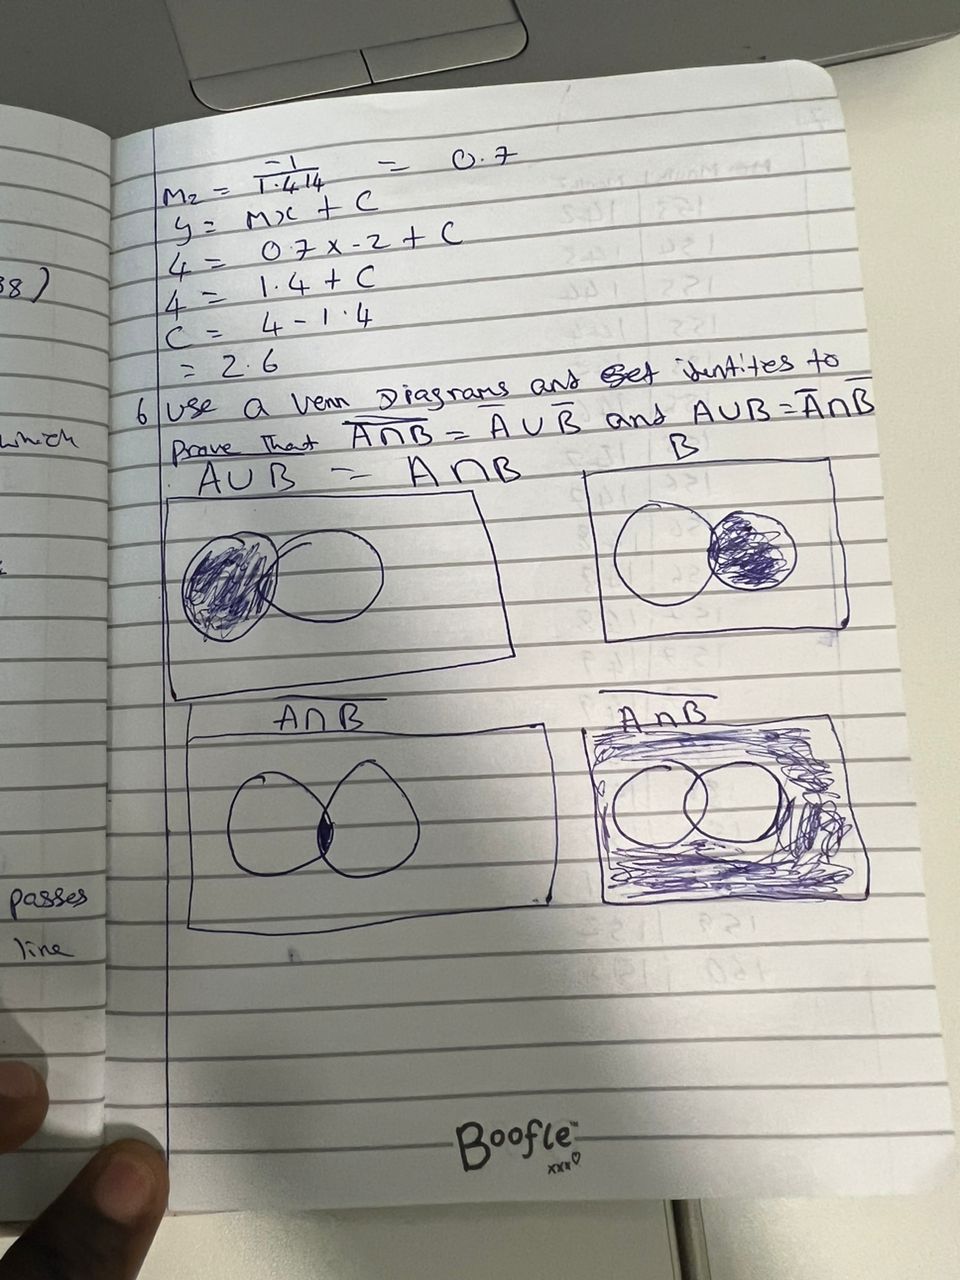 38)
which
passes
line
M₂ = -1/1.414 = 0.7
y = mx + C
4 = 0.7 x -2 + C
4 = 1.4 + C
C = 4 - 1.4
= 2.6
6 Use a Venn Diagrams and Set identites to
prove that A̅∩̅B̅ = A̅ ∪ B̅ and A∪B = A̅∩B̅
A∪B = A∩B
B
A̅∩̅B̅
A̅∩̅B̅
Boofle™
xxx♡